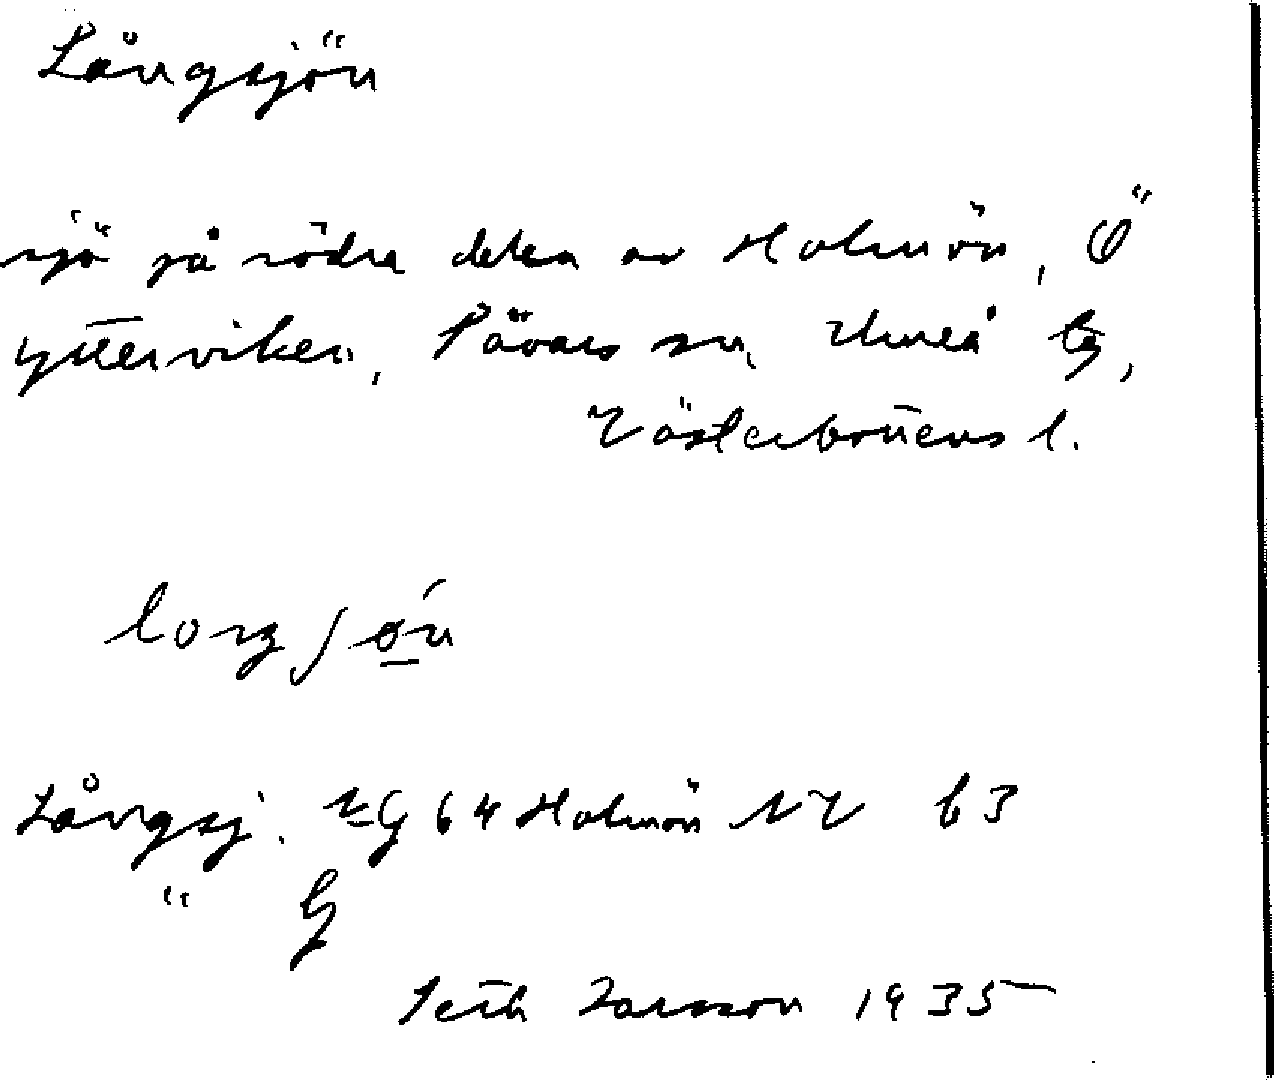 Långsjön
sjö på södra delen av Holmön, Ö
ytterviken, Sävars sn, Umeå
Västerbottens l.
Långsj. EG 64 Holmön NV b3
"
Seth Larsson 1935